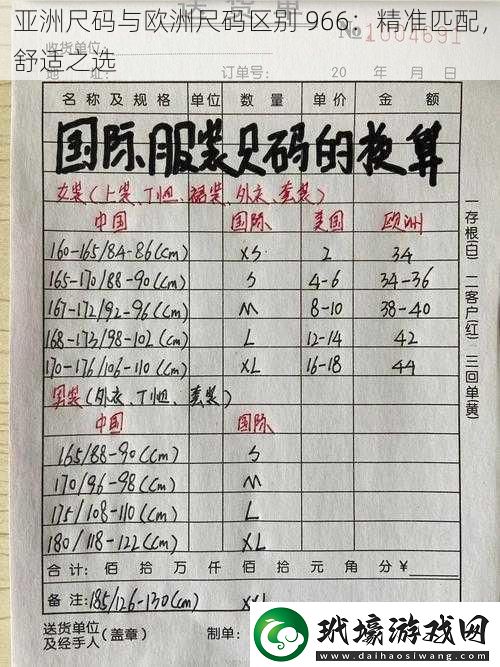 亚洲尺码与欧洲尺码区别 966：精准匹配，
舒适之选
送货单
1004691
收货单位
订单号: 20 年 月 日
名称及规格 单位 数量 单价 金额
国际服装尺码的换算
女装(上装、T恤、裙装、外衣、套装)
中国 国际 美国 欧洲
160-165/84-86(cm) XS 2 34
165-170/88-90(cm) S 4-6 34-36
167-172/92-96(cm) M 8-10 38-40
168-173/98-102(cm) L 12-14 42
170-176/106-110(cm) XL 16-18 44
男装(外衣、T恤、套装)
中国 国际
165/88-90(cm) S
170/96-98(cm) M
175/108-110(cm) L
180/118-122(cm) XL
合计: 佰 拾 万 仟 佰 拾 元 角 分 ¥
备注: 185/126-130(cm) XXL
送货单位
及经手人(盖章) 制单:
一存根(白) 二客户红) 三回单(黄)
玳壕游戏网
www.daihaosiwang.com